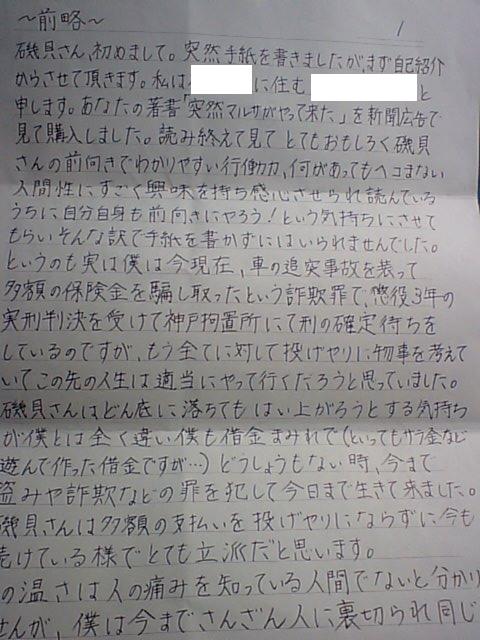 ～前略～ 1
磯貝さん、初めまして。突然手紙を書きましたが、まず自己紹介
からさせて頂きます。私は に住む と
申します。あなたの著書「突然マルサがやって来た」を新聞広告で
見て購入しました。読み終えて見て とてもおもしろく磯貝
さんの前向きでわかりやすい行働力、何があってもヘコまない
人間性にすごく興味を持ち感心させられ読んでいる
うちに自分自身も前向きにやろう！という気持ちにさせて
もらいそんな訳で手紙を書かずにはいられませんでした。
というのも実は僕は今現在、車の追突事故を装って
多額の保険金を騙し取ったという詐欺罪で、懲役3年の
実刑判決を受けて神戸拘置所にて刑の確定待ちを
しているのですが、もう全てに対して投げヤリに物事を考えて
いてこの先の人生は適当にやって行くだろうと思っていました。
磯貝さんはどん底に落ちても はい上がろうとする気持ち
が僕とは全く違い僕も借金まみれで(といってもサラ金など
遊んで作った借金ですが…)どうしょうもない時、今まで
盗みや詐欺などの罪を犯して今日まで生きて来ました。
磯貝さんは多額の支払いを投げヤリにならずに今も
続けている様でとても立派だと思います。
の温さは人の痛みを知っている人間でないと分かり
せんが、僕は今までさんざん人に裏切られ同じ